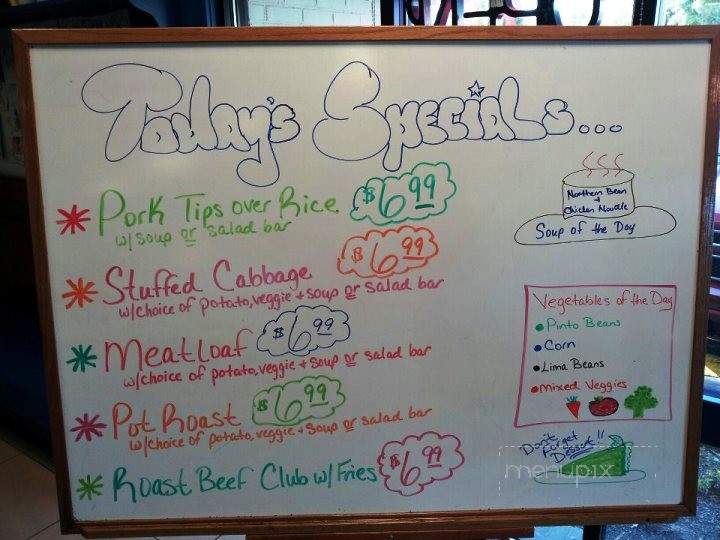 Today's Specials...
Pork Tips over Rice $6.99
w/ soup or salad bar
Stuffed Cabbage $6.99
w/choice of potato, veggie + soup or salad bar
Meatloaf $6.99
w/choice of potato, veggie + soup or salad bar
Pot Roast $6.99
w/choice of potato, veggie + soup or salad bar
Roast Beef Club w/ Fries $6.99
Northern Bean
+
Chicken Noodle
Soup of the Day
Vegetables of the Day
• Pinto Beans
• Corn
• Lima Beans
• Mixed Veggies
Don't
Forget
Dessert!!
menupix